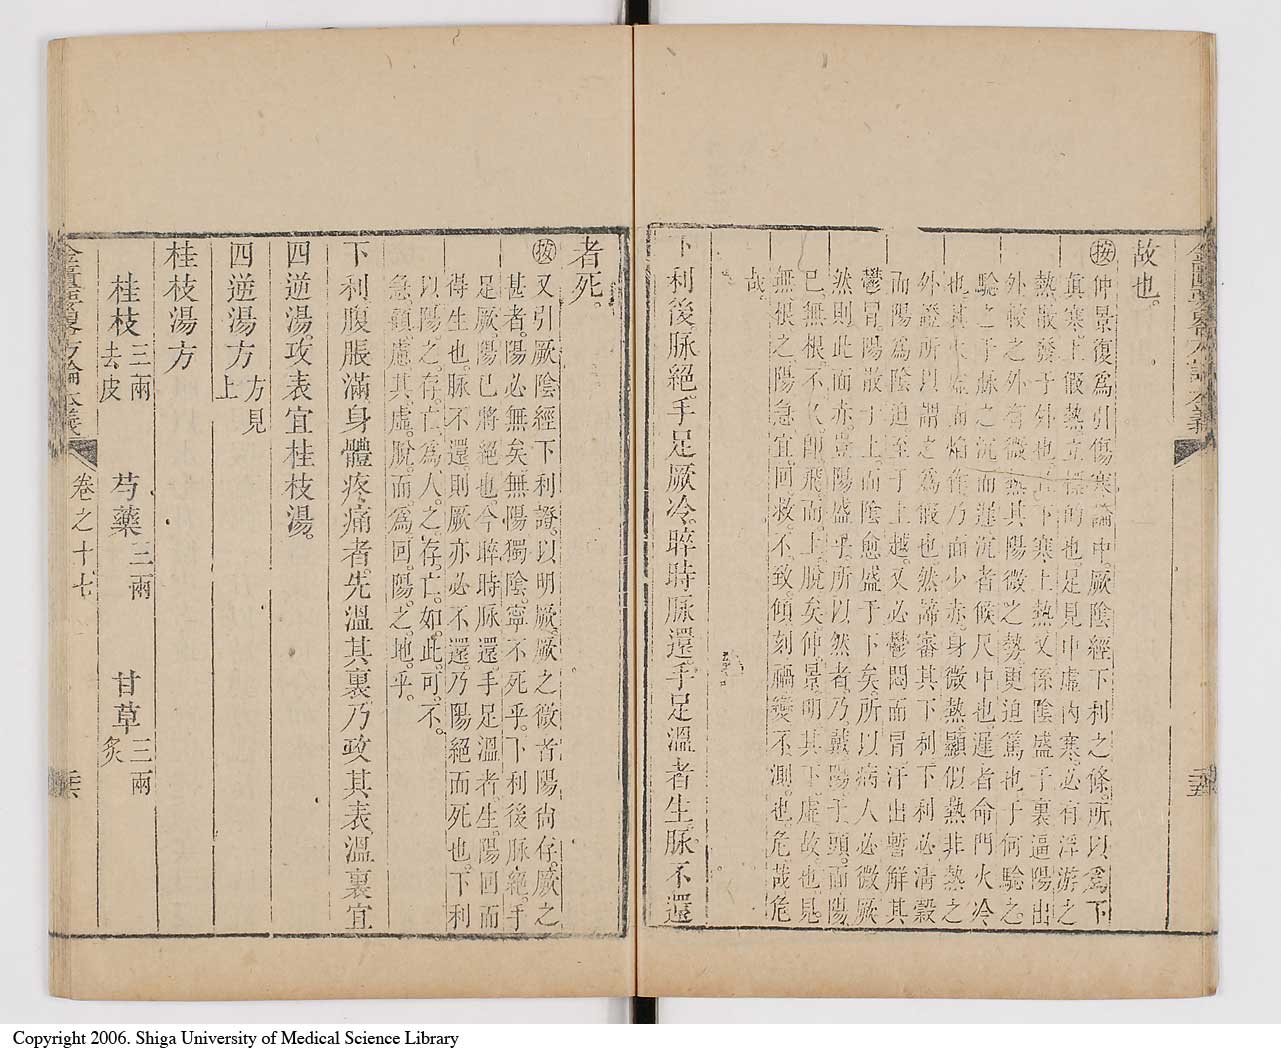 故也。
㊙按仲景復爲引傷寒論中。厥陰經下利之條。所以爲下
眞寒。上假熱。立標的也。足見中虛內寒。必有浮游之
熱。散發于外也。下寒上熱。又係陰盛于裏。逼陽出
外。較之外有微熱。其陽微之勢。更迫篤也。于何驗之。
驗之于脉之沉而遲。沉者候尺中也。遲者命門火冷
也。其火虛而焰作。乃面少赤。身微熱。顯似熱非熱之
外證。所以謂之爲假也。然諦審其下利。下利必淸穀
而陽爲陰迫。至于上越。又必鬱悶而冒。汗出暫解。其
鬱冒。陽散于上。而陰愈盛于下矣。所以病人必微厥
然則此面赤。豈陽盛乎。所以然者。乃戴陽于頭。面陽
已無根。不久卽飛而上脫矣。仲景明其下虛故也。見
無根之陽。急宜回救。不致傾刻禍變不測也。危哉危
哉。
下利後脉絕。手足厥冷。晬時脉還。手足溫者生。脉不還
者死。
按又引厥陰經下利證。以明厥。厥之微者陽尙存。厥之
甚者。陽必無矣。無陽獨陰。寧不死乎。下利後脉絕。手
足厥。陽已將絕也。今晬時脉還。手足溫者生。陽回而
得生也。脉不還。則厥亦必不還。乃陽絕而死也。下利
以陽。之。存。亡。爲人。之。存。亡。如。此。可。不。
急。顧。慮。其。虛。脫。而。爲。回。陽。之。地。乎。
下利腹脹滿。身體疼痛者。先溫其裏。乃攻其表。溫裏宜
四逆湯。攻表宜桂枝湯。
四逆湯方 方見上
桂枝湯方
桂枝三兩去皮 芍藥三兩 甘草三兩炙
卷之十七